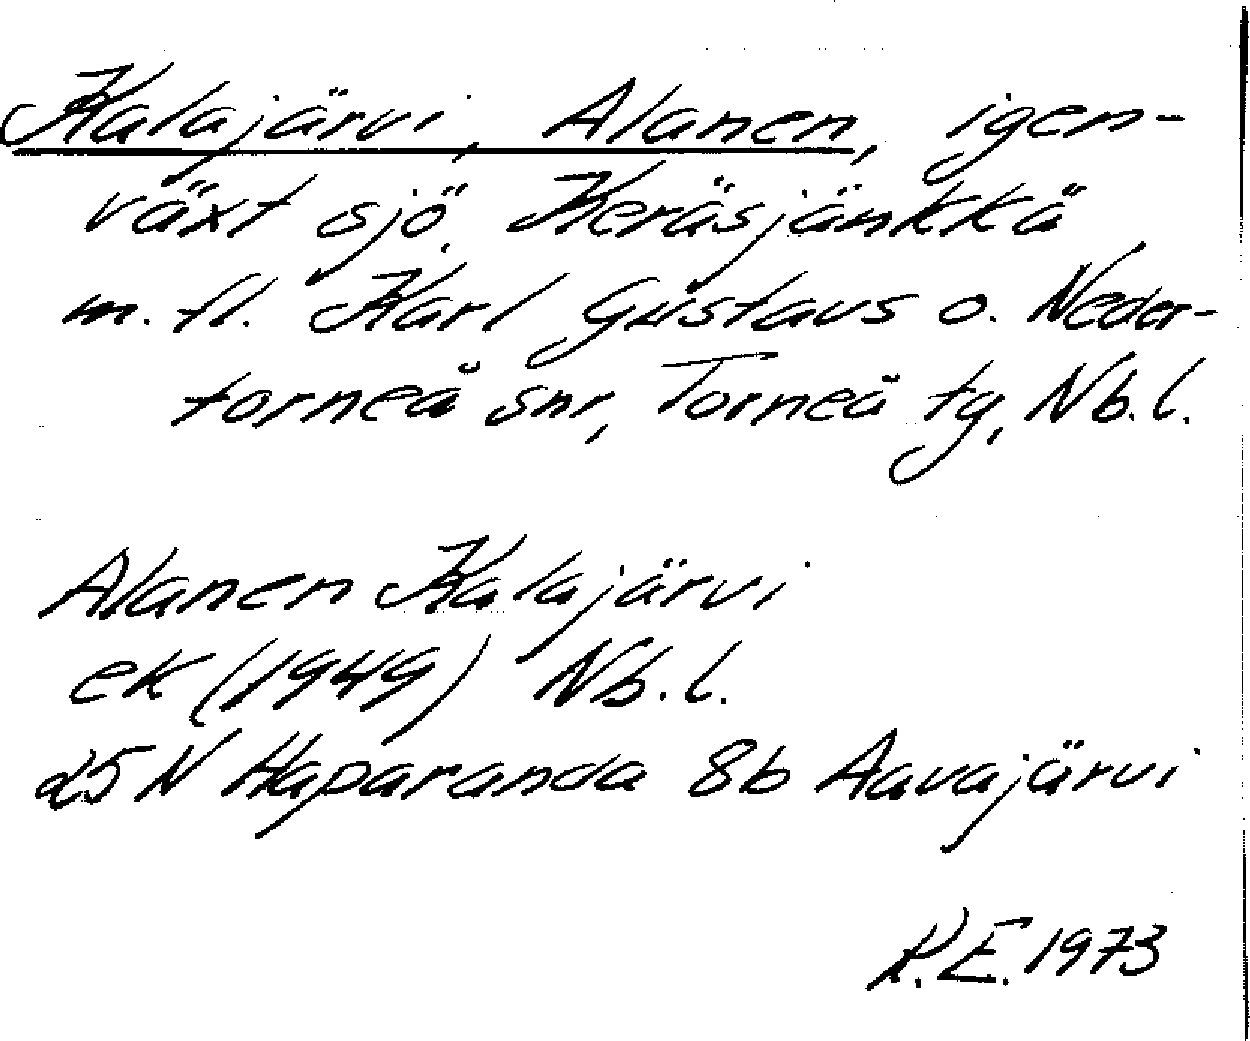 Kalajärvi, Alanen, igen-
växt sjö. Keräsjänkkä
m. fl. Karl Gustavs o. Neder-
torneå snr, Torneå tg, Nb. l.
Alanen Kalajärvi
ek (1949) Nb. l.
25 N Haparanda 8b Aavajärvi
K.E. 1973